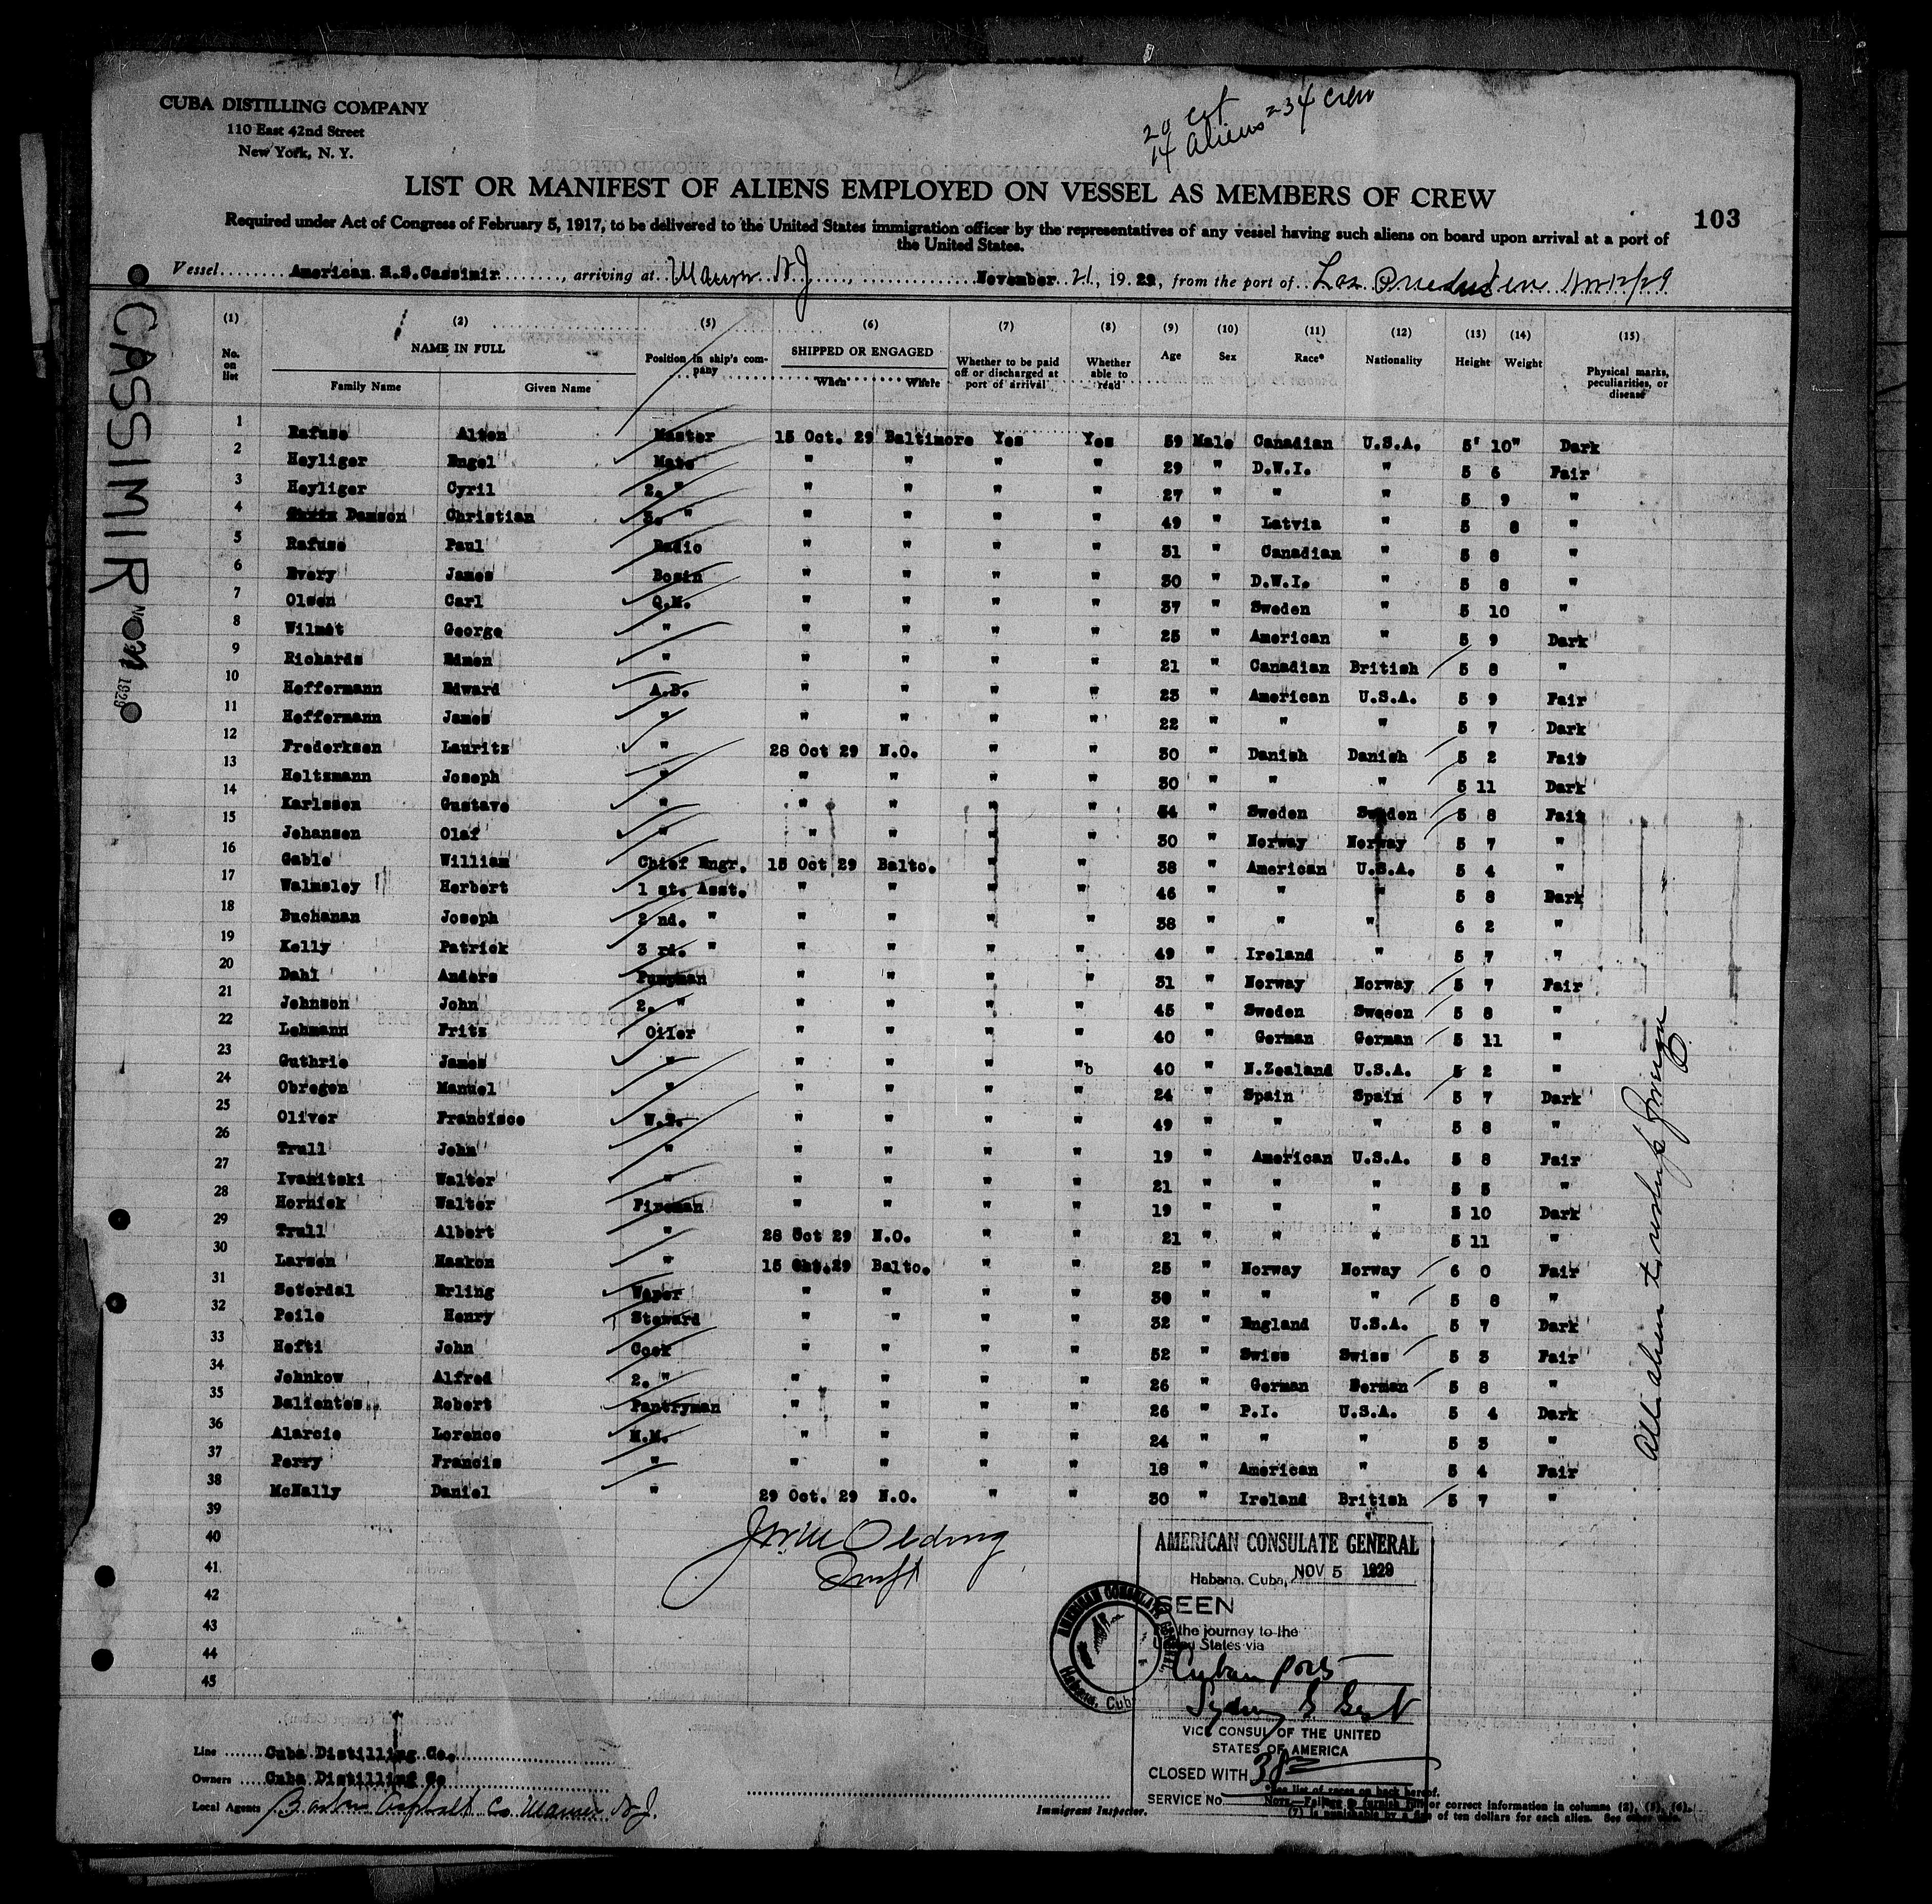 CUBA DISTILLING COMPANY
110 East 42nd Street
New York, N. Y.
20 cit
14 Aliens = 34 crew
LIST OR MANIFEST OF ALIENS EMPLOYED ON VESSEL AS MEMBERS OF CREW
103
Required under Act of Congress of February 5, 1917, to be delivered to the United States immigration officer by the representatives of any vessel having such aliens on board upon arrival at a port of
the United States.
Vessel American S.S.Cassimir, arriving at Maurer N J, November 21, 1929, from the port of Los
CASSIMIR NOV 21 1929
(1) (2) (5) (6) (7) (8) (9) (10) (11) (12) (13) (14) (15)
No. on list NAME IN FULL Family Name Given Name Position in ship's company SHIPPED OR ENGAGED When Where Whether to be paid off or discharged at port of arrival Whether able to read Age Sex Race* Nationality Height Weight Physical marks, peculiarities, or disease
1 Rafuse Alton Master 15 Oct. 29 Baltimore Yes Yes 59 Male Canadian U.S.A. 5' 10" Dark
2 Heyliger Engel Mate " " " " 29 " D.W.I. " 5 6 Fair
3 Heyliger Cyril 2. " " " " " 27 " " " 5 9 "
4 Damson Christian 3. " " " " " 49 " Latvia " 5 8 "
5 Rafuse Paul Radio " " " " 31 " Canadian " 5 8 "
6 Every James Bosin " " " " 30 " D.W.I. " 5 8 "
7 Olsen Carl Q.M. " " " " 37 " Sweden " 5 10 "
8 Wilmot George " " " " " 25 " American " 5 9 Dark
9 Richards Edmon " " " " " 21 " Canadian British 5 8 "
10 Heffermann Edward A.B. " " " " 23 " American U.S.A. 5 9 Fair
11 Heffermann James " " " " " 22 " " " 5 7 Dark
12 Frederksen Lauritz " 28 Oct 29 N.O. " " 30 " Danish Danish 5 2 Fair
13 Holtzmann Joseph " " " " " 30 " " " 5 11 Dark
14 Karlssen Gustave " " " " " 34 " Sweden Sweden 5 8 Fair
15 Johansen Olaf " " " " " 30 " Norway Norway 5 7 "
16 Gable William Chief Engr. 15 Oct 29 Balto. " " 38 " American U.S.A. 5 4 "
17 Walmsley Herbert 1 st. Asst. " " " " 46 " " " 5 8 Dark
18 Buchanan Joseph 2 nd. " " " " " 38 " " " 6 2 "
19 Kelly Patrick 3 rd. " " " " " 49 " Ireland " 5 7 "
20 Dahl Anders Pumpman " " " " 31 " Norway Norway 5 7 Fair
21 Johnson John 2. " " " " " 45 " Sweden Sweeen 5 8 "
22 Lehmann Fritz Oiler " " " " 40 " German German 5 11 "
23 Guthrie James " " " " "b 40 " N.Zealand U.S.A. 5 2 "
24 Obregon Manuel " " " " " 24 " Spain Spain 5 7 Dark
25 Oliver Francisco W.T. " " " " 49 " " " 5 8 "
26 Trull John " " " " " 19 " American U.S.A. 5 8 Fair
27 Ivanitski Walter " " " " " 21 " " " 5 5 "
28 Hornick Walter Fireman " " " " 19 " " " 5 10 Dark
29 Trull Albert " 28 Oct 29 N.O. " " 21 " " " 5 11 "
30 Larsen Haakon " 15 Oct.29 Balto. " " 25 " Norway Norway 6 0 Fair
31 Seterdal Erling Wiper " " " " 30 " " " 5 8 "
32 Peile Henry Steward " " " " 32 " England U.S.A. 5 7 Dark
33 Hefti John Cook " " " " 52 " Swiss Swiss 5 3 Fair
34 Johnkow Alfred 2. " " " " " 26 " German German 5 8 "
35 Balientes Robert Pantryman " " " " 26 " P.I. U.S.A. 5 4 Dark
36 Alarcie Lorence M.M. " " " " 24 " " " 5 3 "
37 Perry Francis " " " " " 18 " American " 5 4 Fair
38 McNally Daniel " 29 Oct. 29 N.O. " " 30 " Ireland British 5 7 "
39
40
41
42
43
44
45
All aliens
AMERICAN CONSULATE GENERAL
Habana, Cuba, NOV 5 1929
SEEN
the journey to the
United States via
Cuban ports
VICE CONSUL OF THE UNITED
STATES OF AMERICA
CLOSED WITH 38
SERVICE No.
AMERICAN CONSULATE GENERAL Habana, Cuba
Line Cuba Distilling Co.
Owners Cuba Distilling Co
Local Agents Barber Asphalt Co Maurer N.J.
Immigrant Inspector.
*See list of races on back hereof.
NOTE.—Failure to furnish full or correct information in columns (2), (5), (6),
(7) is punishable by a fine of ten dollars for each alien. See other side.